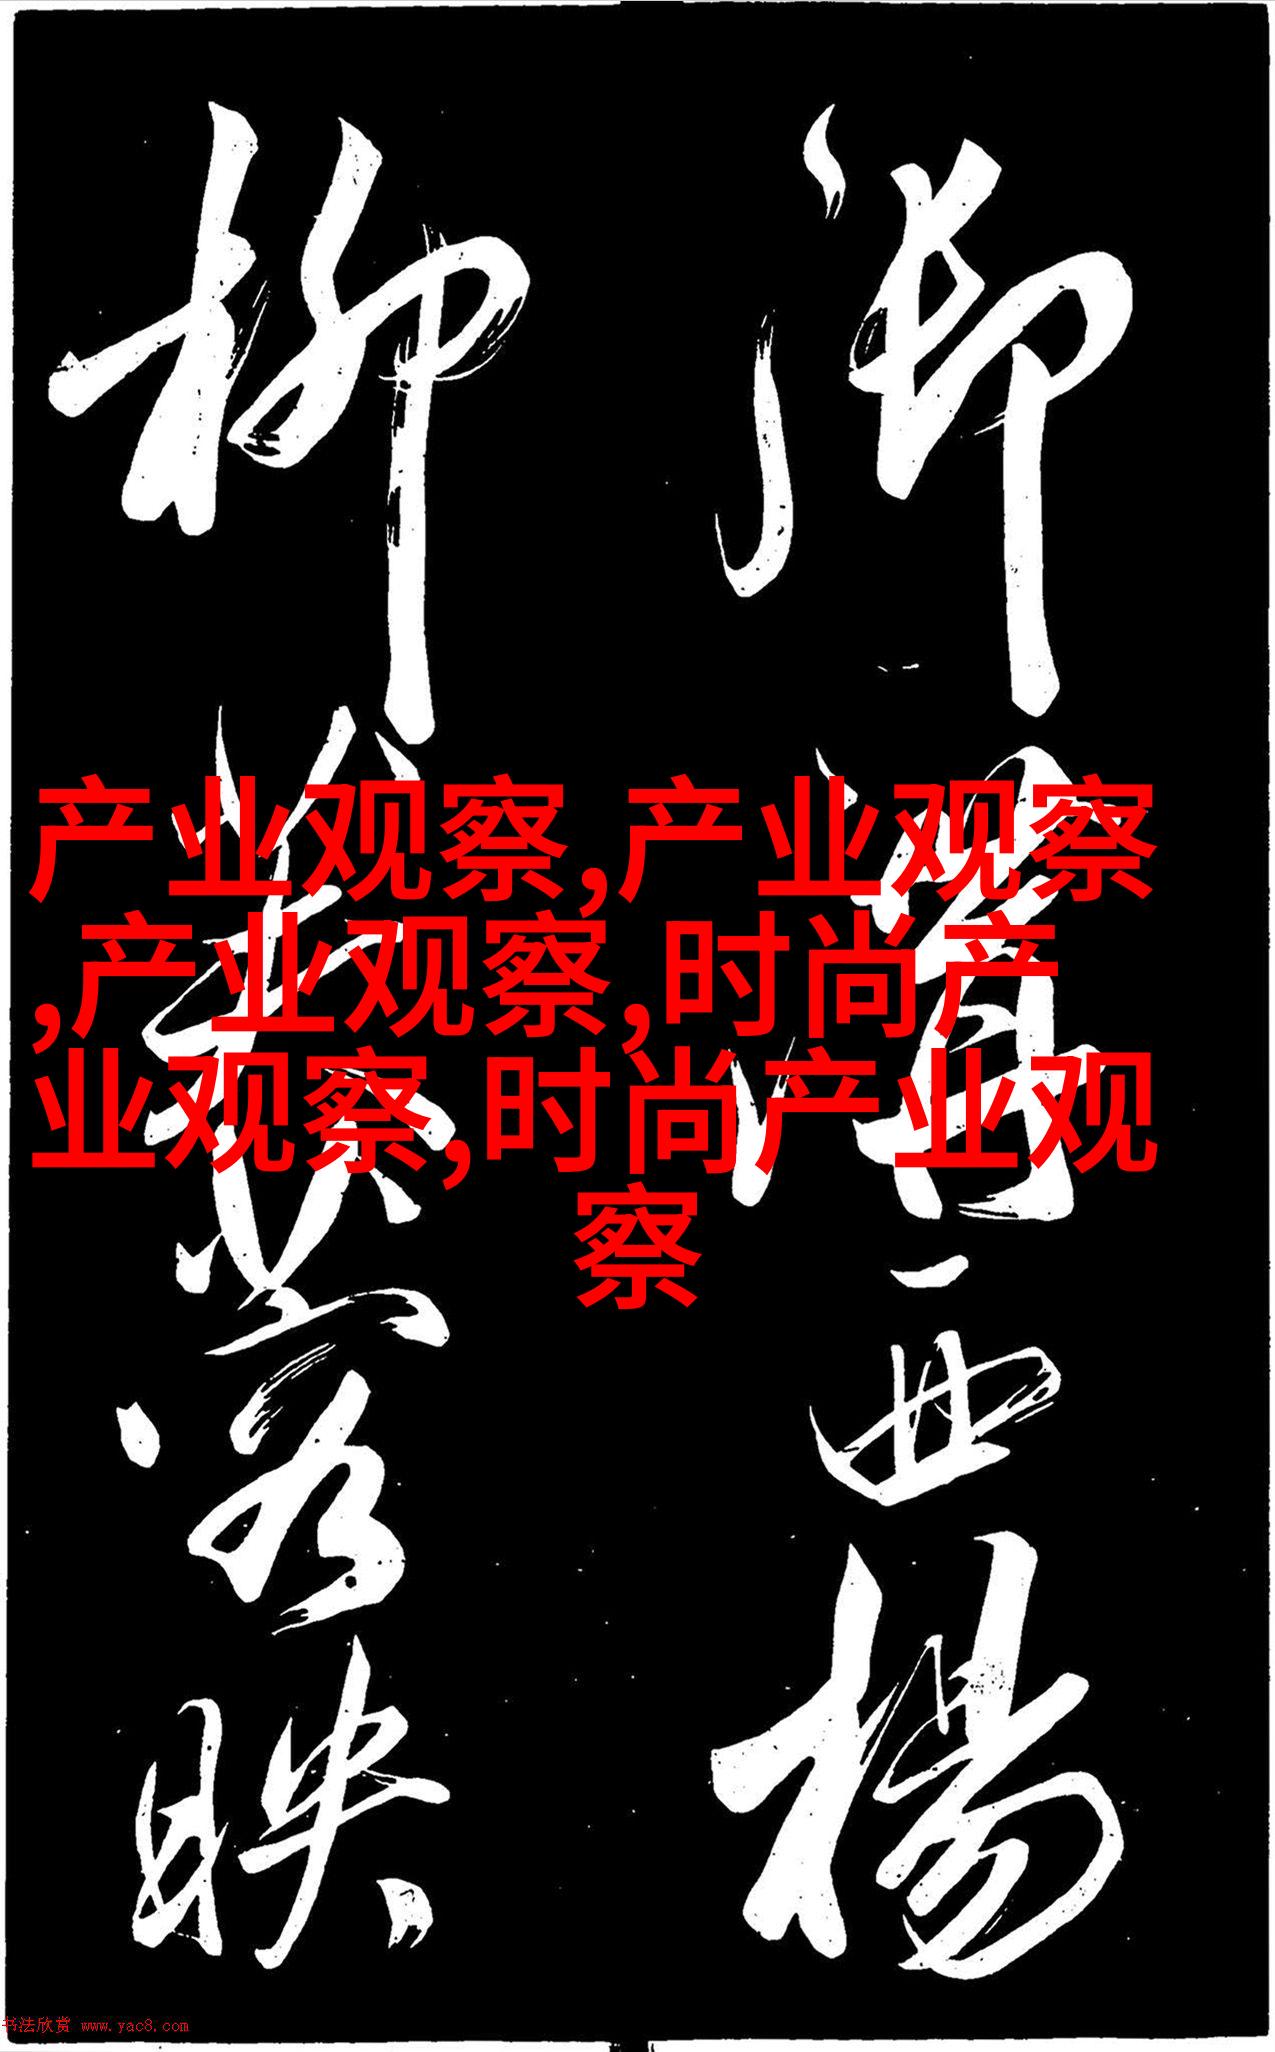 御沟西杨
柳
映
产业观察,产业观察
,产业观察,时尚产
业观察,时尚产业观
察
书法欣赏 www.yac8.com